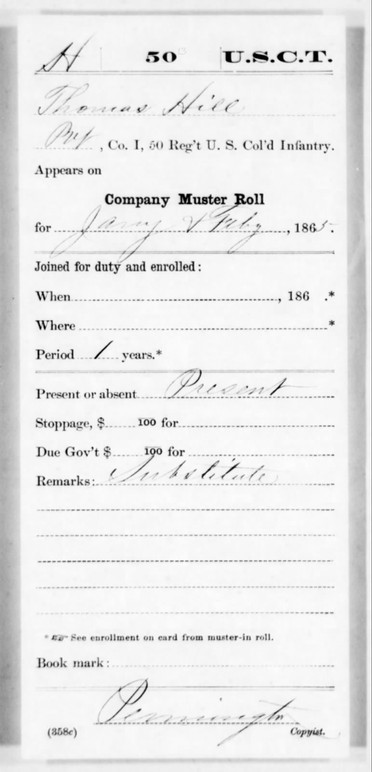 H 50 U.S.C.T.
Thomas Hill
Pvt, Co. I, 50 Reg't U. S. Col'd Infantry.
Appears on
Company Muster Roll
for Jany & Feby, 1865.
Joined for duty and enrolled:
When , 186 .*
Where *
Period 1 years.*
Present or absent Present
Stoppage, $ 100 for
Due Gov't $ 100 for
Remarks: Substitute
* See enrollment on card from muster-in roll.
Book mark:
Pennington
(358c) Copyist.